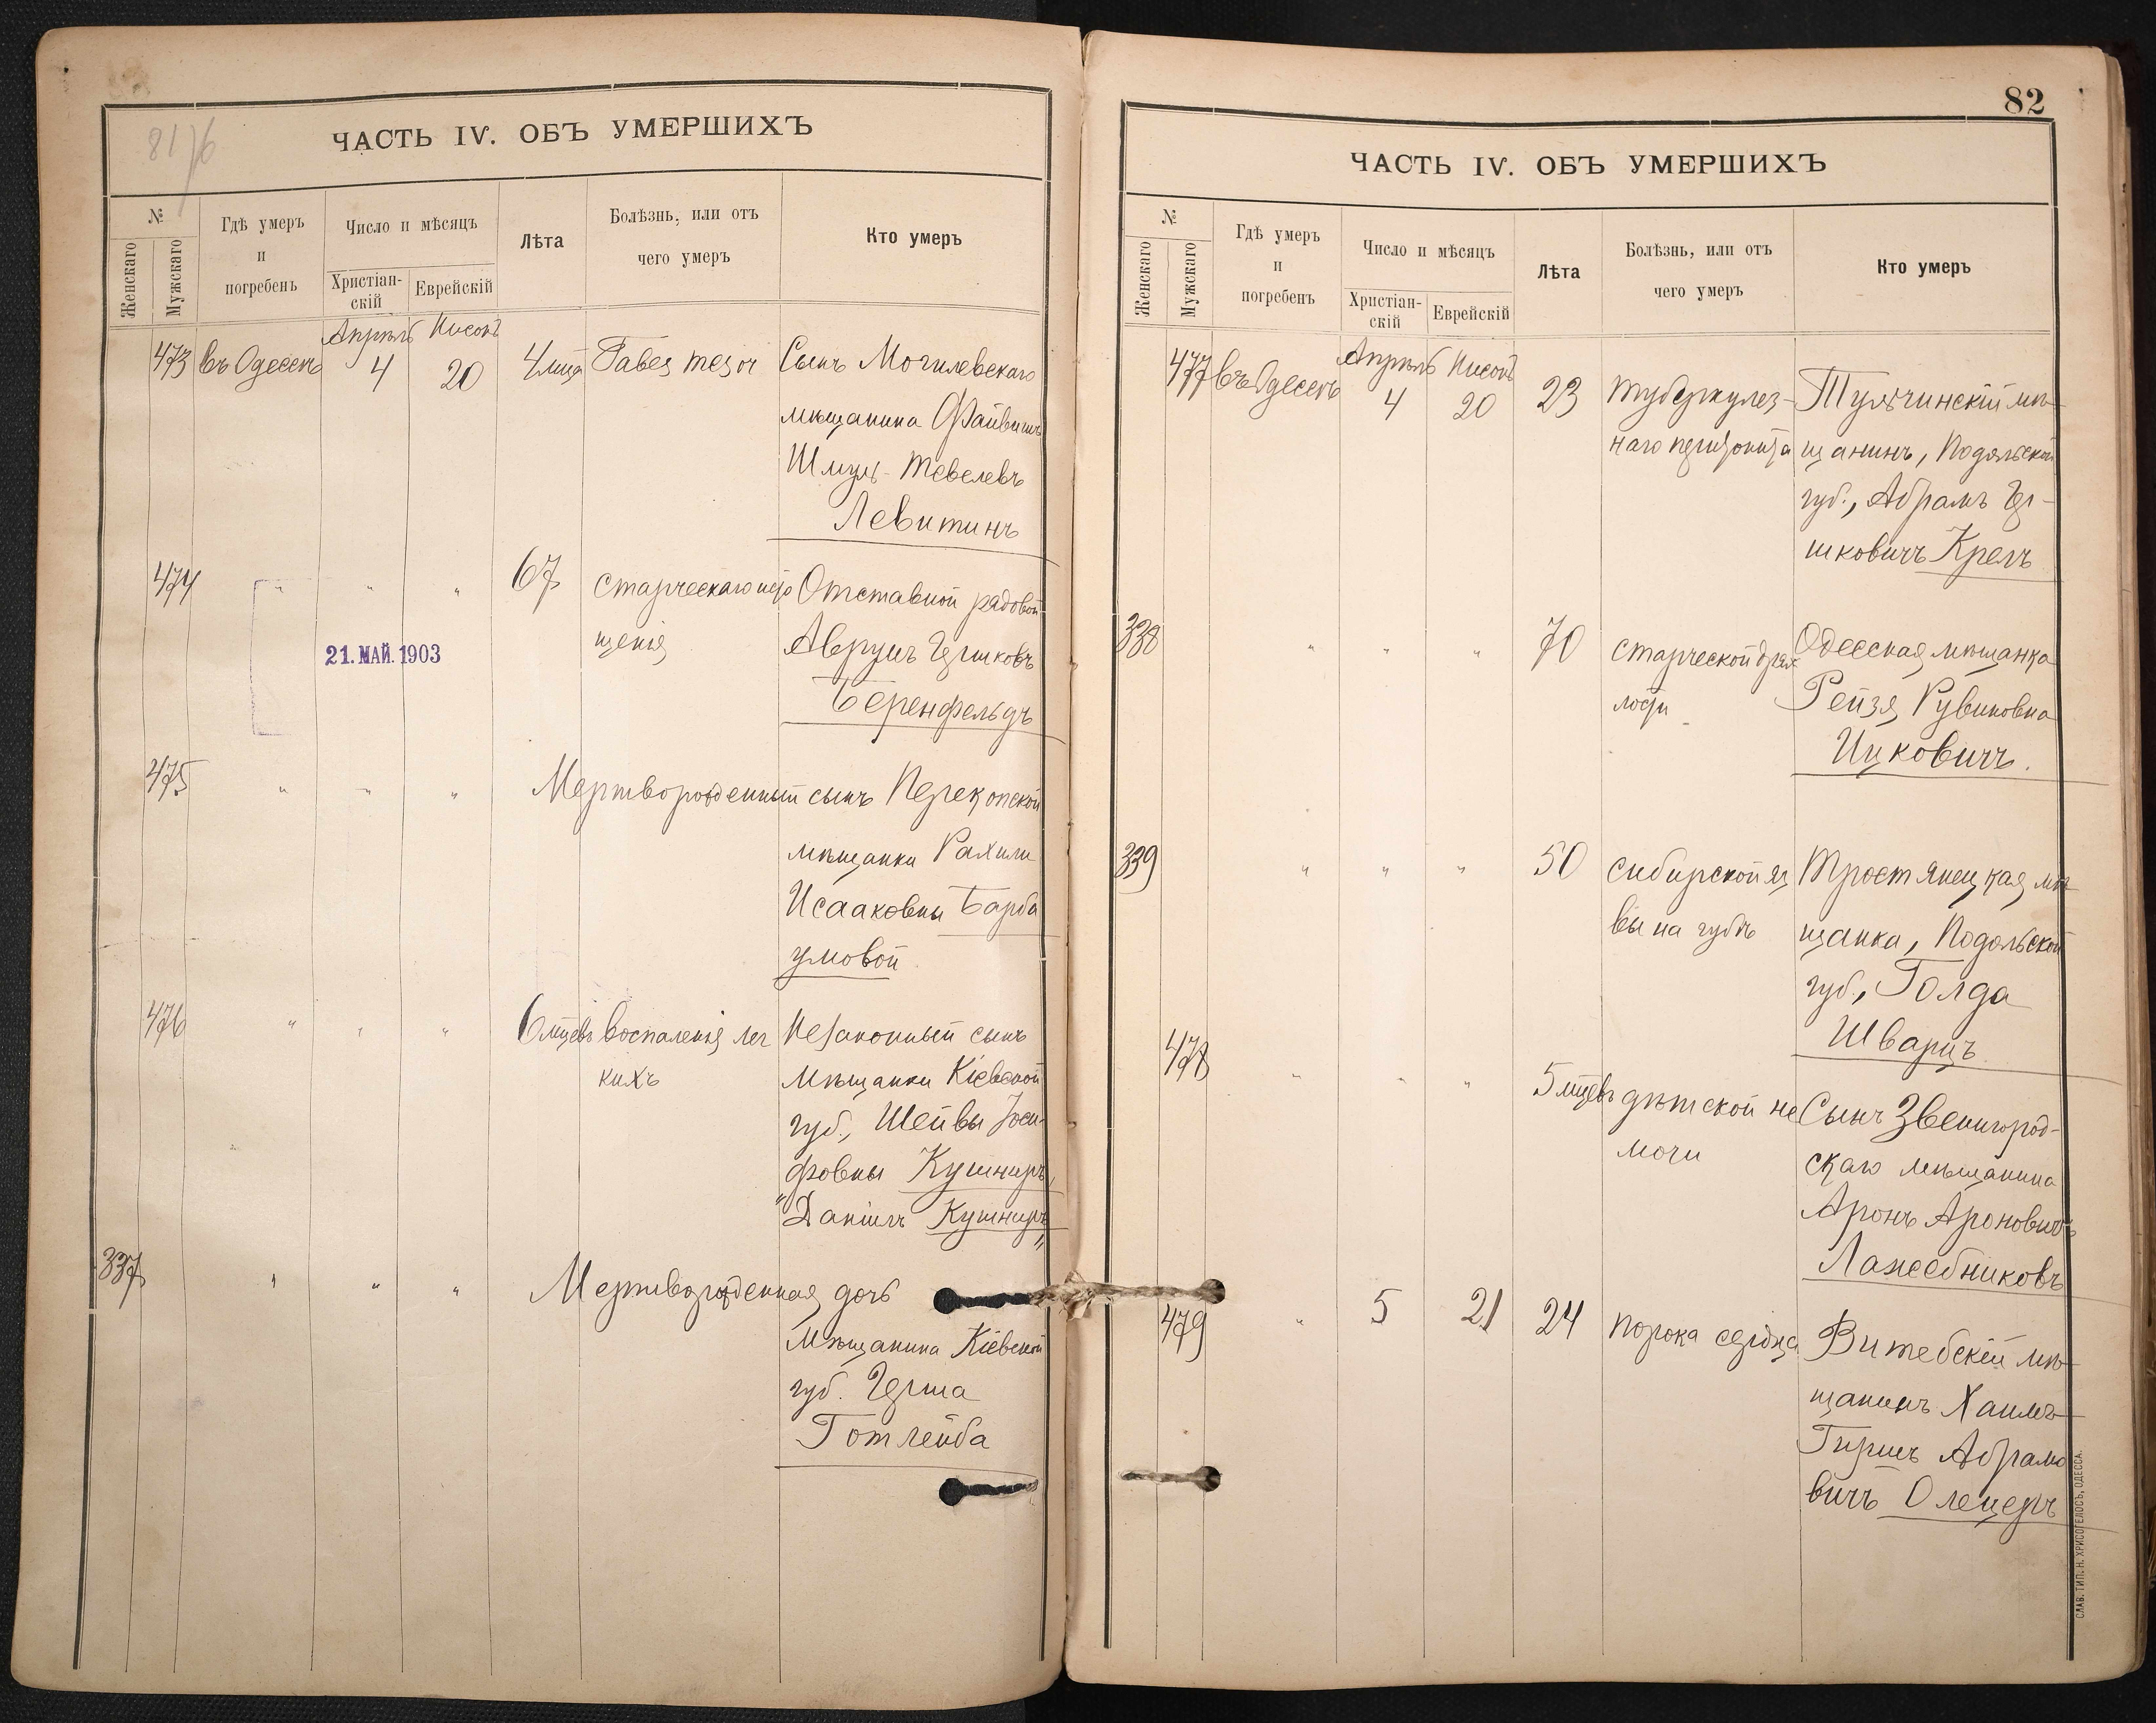 81/6
ЧАСТЬ IV. ОБЪ УМЕРШИХЪ
№
Женскаго
Мужскаго
Гдѣ умеръ
и
погребенъ
Число и мѣсяцъ
Христіан-
скій
Еврейскій
Лѣта
Болѣзнь, или отъ
чего умеръ
Кто умеръ
Апрѣль Нисонъ
473 въ Одессѣ 4 20 4 мца Tabes mesar Сынъ Могилевскаго
мѣщанина Файвишъ
Шмуль-Тевелевъ
Левитинъ
474 " " " 67 старческаго исто Отставной рядовой
щенія Аврумъ Гершковъ
Беренфельдъ
21. МАЙ. 1903
475 " " " Мертворожденный сынъ Перекопской
мѣщанки Рахили
Исааковны Барба
умовой
476 " " " 6 мцевъ воспаленія лег Незаконный сынъ
кихъ мѣщанки Кіевской
губ., Шейвы Іоси-
фовны Кушниръ,
"Даніилъ Кушниръ"
337 " " " Мертворожденная дочь
мѣщанина Кіевской
губ. Герша
Готлейба
82
ЧАСТЬ IV. ОБЪ УМЕРШИХЪ
№
Женскаго
Мужскаго
Гдѣ умеръ
и
погребенъ
Число и мѣсяцъ
Христіан-
скій
Еврейскій
Лѣта
Болѣзнь, или отъ
чего умеръ
Кто умеръ
Апрѣль Нисонъ
477 въ Одессѣ 4 20 23 туберкулез- Тульчинскій мѣ-
наго перитонита щанинъ, Подольской
губ., Абрамъ Гер-
шковичъ Крель
338 " " " 70 старческой дрях Одесская мѣщанка
лости Рейзя Рувиновна
Ицковичъ.
339 " " " 50 сибирской яз Тростянецкая мѣ-
вы на губѣ щанка, Подольской
губ., Голда
Шварцъ
478 " " " 5 мцевъ дѣтской не Сынъ Звенигород-
мочи скаго мѣщанина
Аронъ Ароновичъ
Лазебниковъ
479 " 5 21 24 порока сердца Витебскій мѣ-
щанинъ Хаимъ-
Гиршъ Абрамо
вичъ Олецеръ
СЛАВ. ТИП. Н. ХРИСОГЕЛОСЪ, ОДЕССА.